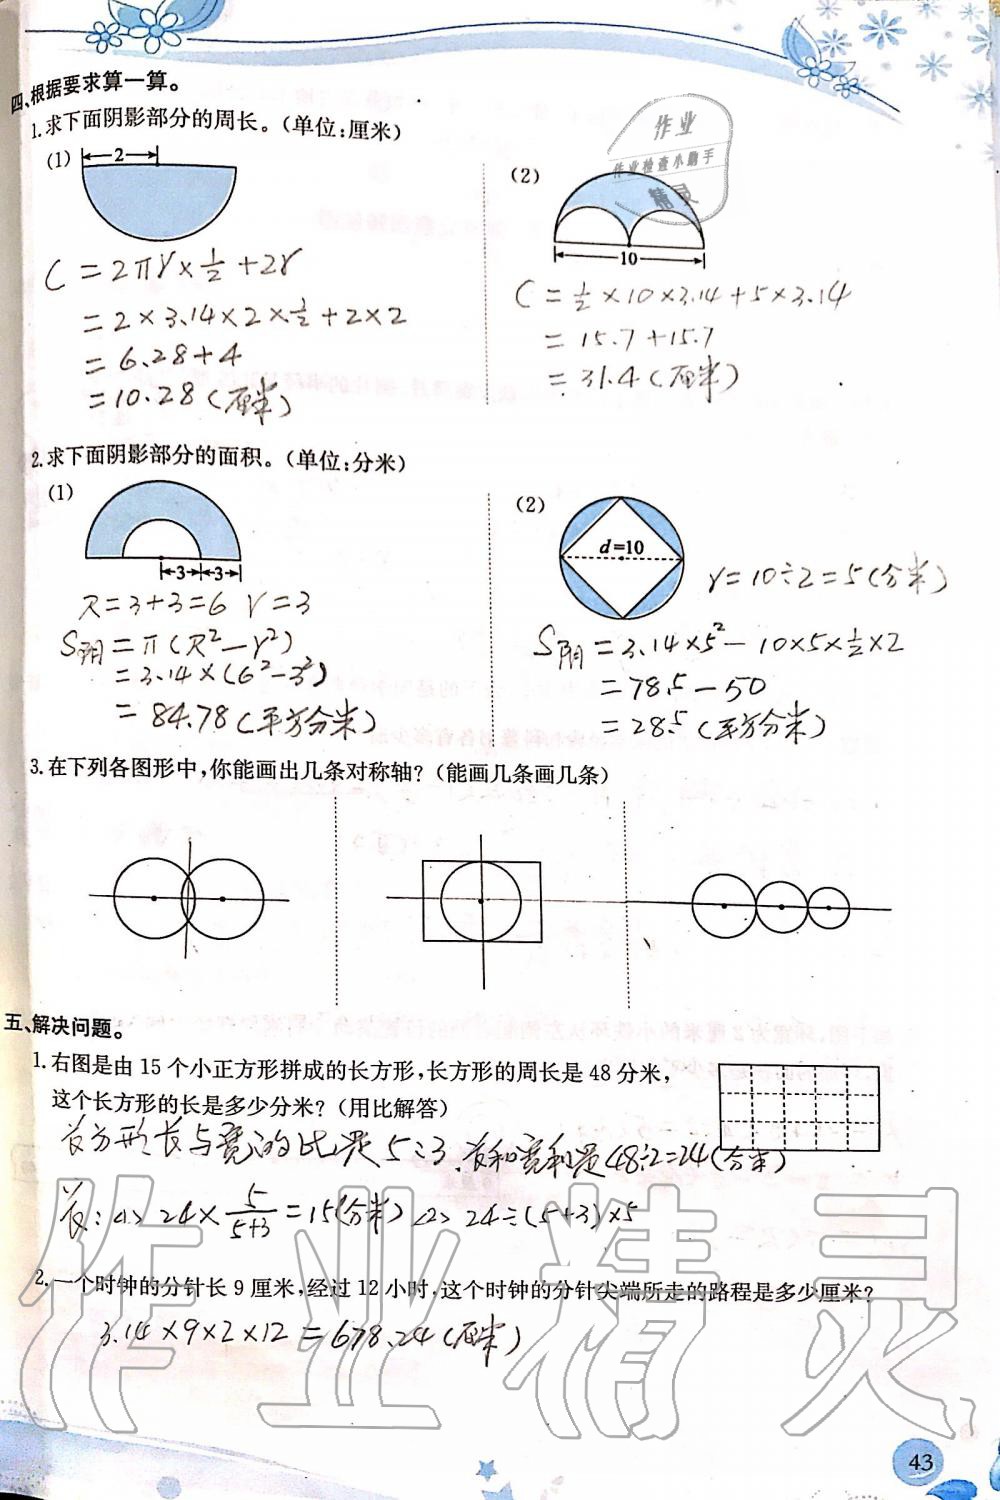 四、根据要求算一算。
1.求下面阴影部分的周长。(单位:厘米)
(1)
2
(2)
作业
作业检查小助手
精灵
10
C=2πr×1/2+2r
=2×3.14×2×1/2+2×2
=6.28+4
=10.28(厘米)
C=1/2×10×3.14+5×3.14
=15.7+15.7
=31.4(厘米)
2.求下面阴影部分的面积。(单位:分米)
(1)
3 3
(2)
d=10
R=3+3=6 r=3
S阴=π(R²-r²)
=3.14×(6²-3²)
=84.78(平方分米)
r=10÷2=5(分米)
S阴=3.14×5²-10×5×1/2×2
=78.5-50
=28.5(平方分米)
3.在下列各图形中,你能画出几条对称轴?(能画几条画几条)
五、解决问题。
1.右图是由15个小正方形拼成的长方形,长方形的周长是48分米,
这个长方形的长是多少分米?(用比解答)
长方形长与宽的比是5:3.长和宽和是48÷2=24(分米)
长:(1)24×5/(5+3)=15(分米) (2)24÷(5+3)×5
2.一个时钟的分针长9厘米,经过12小时,这个时钟的分针尖端所走的路程是多少厘米?
3.14×9×2×12=678.24(厘米)
作业精灵
43